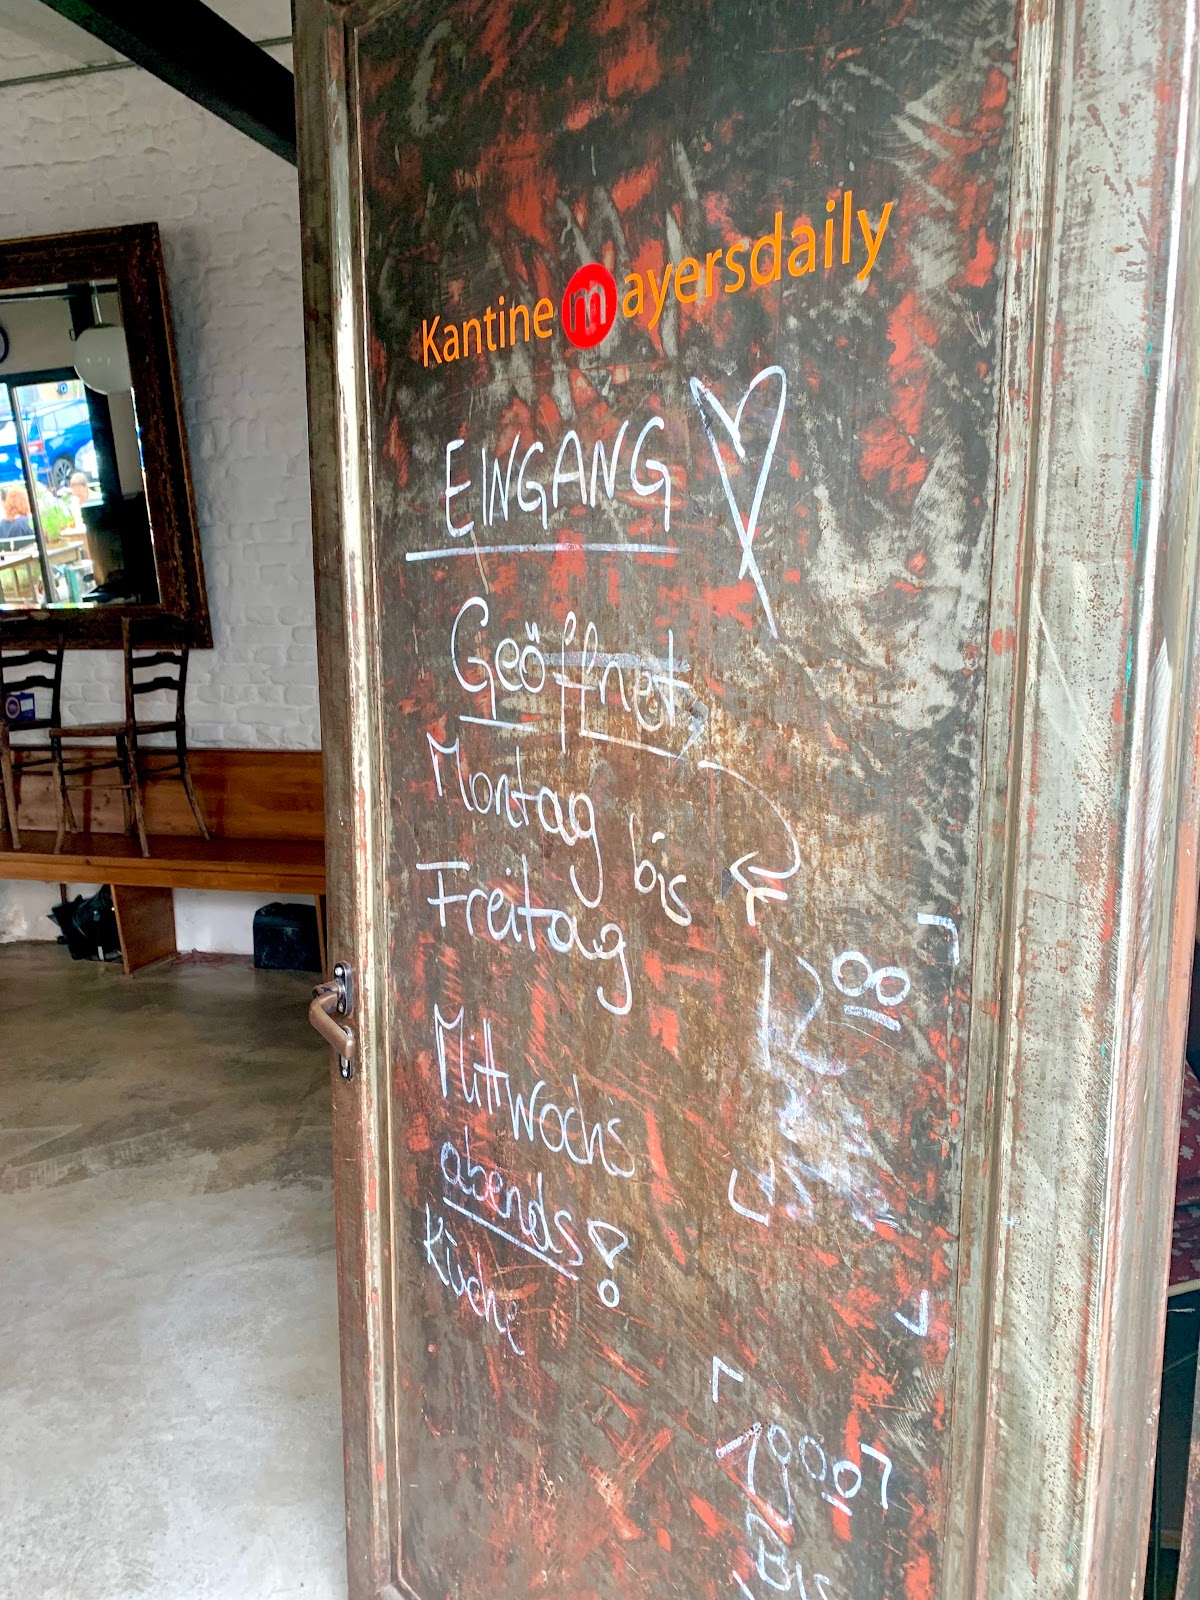 Kantine mayersdaily
EINGANG
Geöffnet
Montag bis
Freitag
Mittwochs
abends!
Küche
1900
Bis